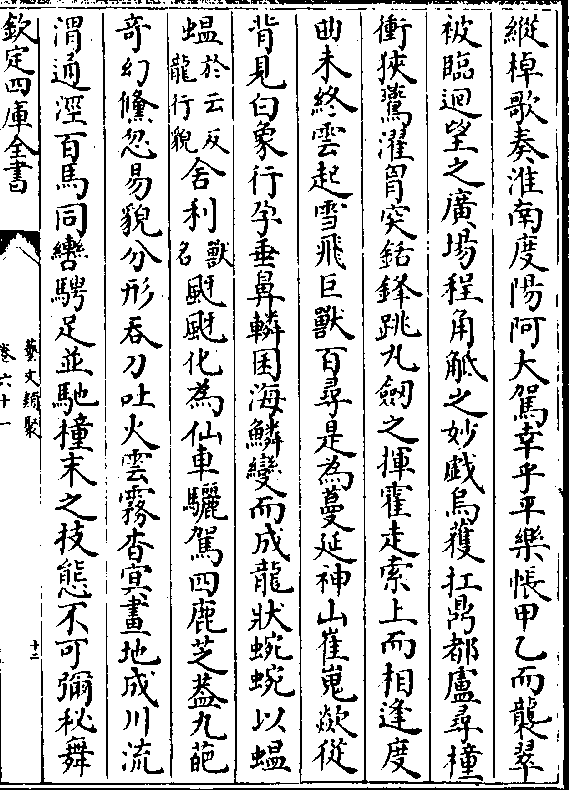 縱棹歌奏淮南度陽阿大駕幸乎平樂帳甲乙而襲翠
被臨迴望之廣場程角觝之妙戯烏獲扛鼎都盧尋橦
衝狹鷰濯胷突銛鋒跳丸劒之揮霍走索上而相逢度
曲未終雲起雪飛巨獸百尋是為蔓延神山崔嵬歘從
背見白象行孕垂鼻轔囷海鱗變而成龍狀蜿蜿以蝹
蝹於云反龍行貌舍利獸名颬颬化為仙車驪駕四鹿芝葢九葩
奇幻儵忽易貌分形吞刀吐火雲霧杳冥畫地成川流
渭通涇百馬同轡騁足並馳橦末之技態不可彌秘舞
欽定四庫全書
藝文類聚
卷六十一
十二